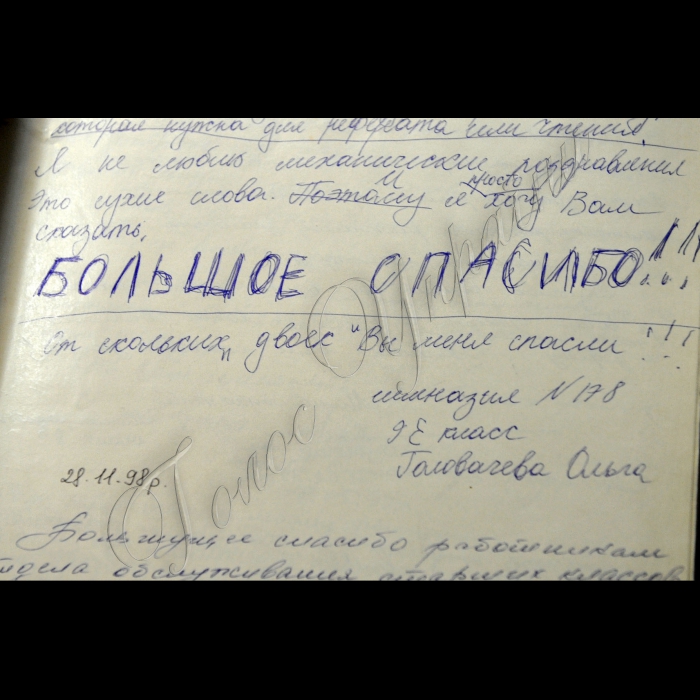 которая нужна для реферата или чтения.
Я не люблю механические поздравления
Это сухие слова. Поэтому И я просто хочу Вам
сказать,
БОЛЬШОЕ СПАСИБО!!!
От скольких "двоек" Вы меня спасли!!!
гимназия N 178
9Е класс
Головачева Ольга
28.11.98р.
Голос України
Большущее спасибо работникам
отдела обслуживания старших классов